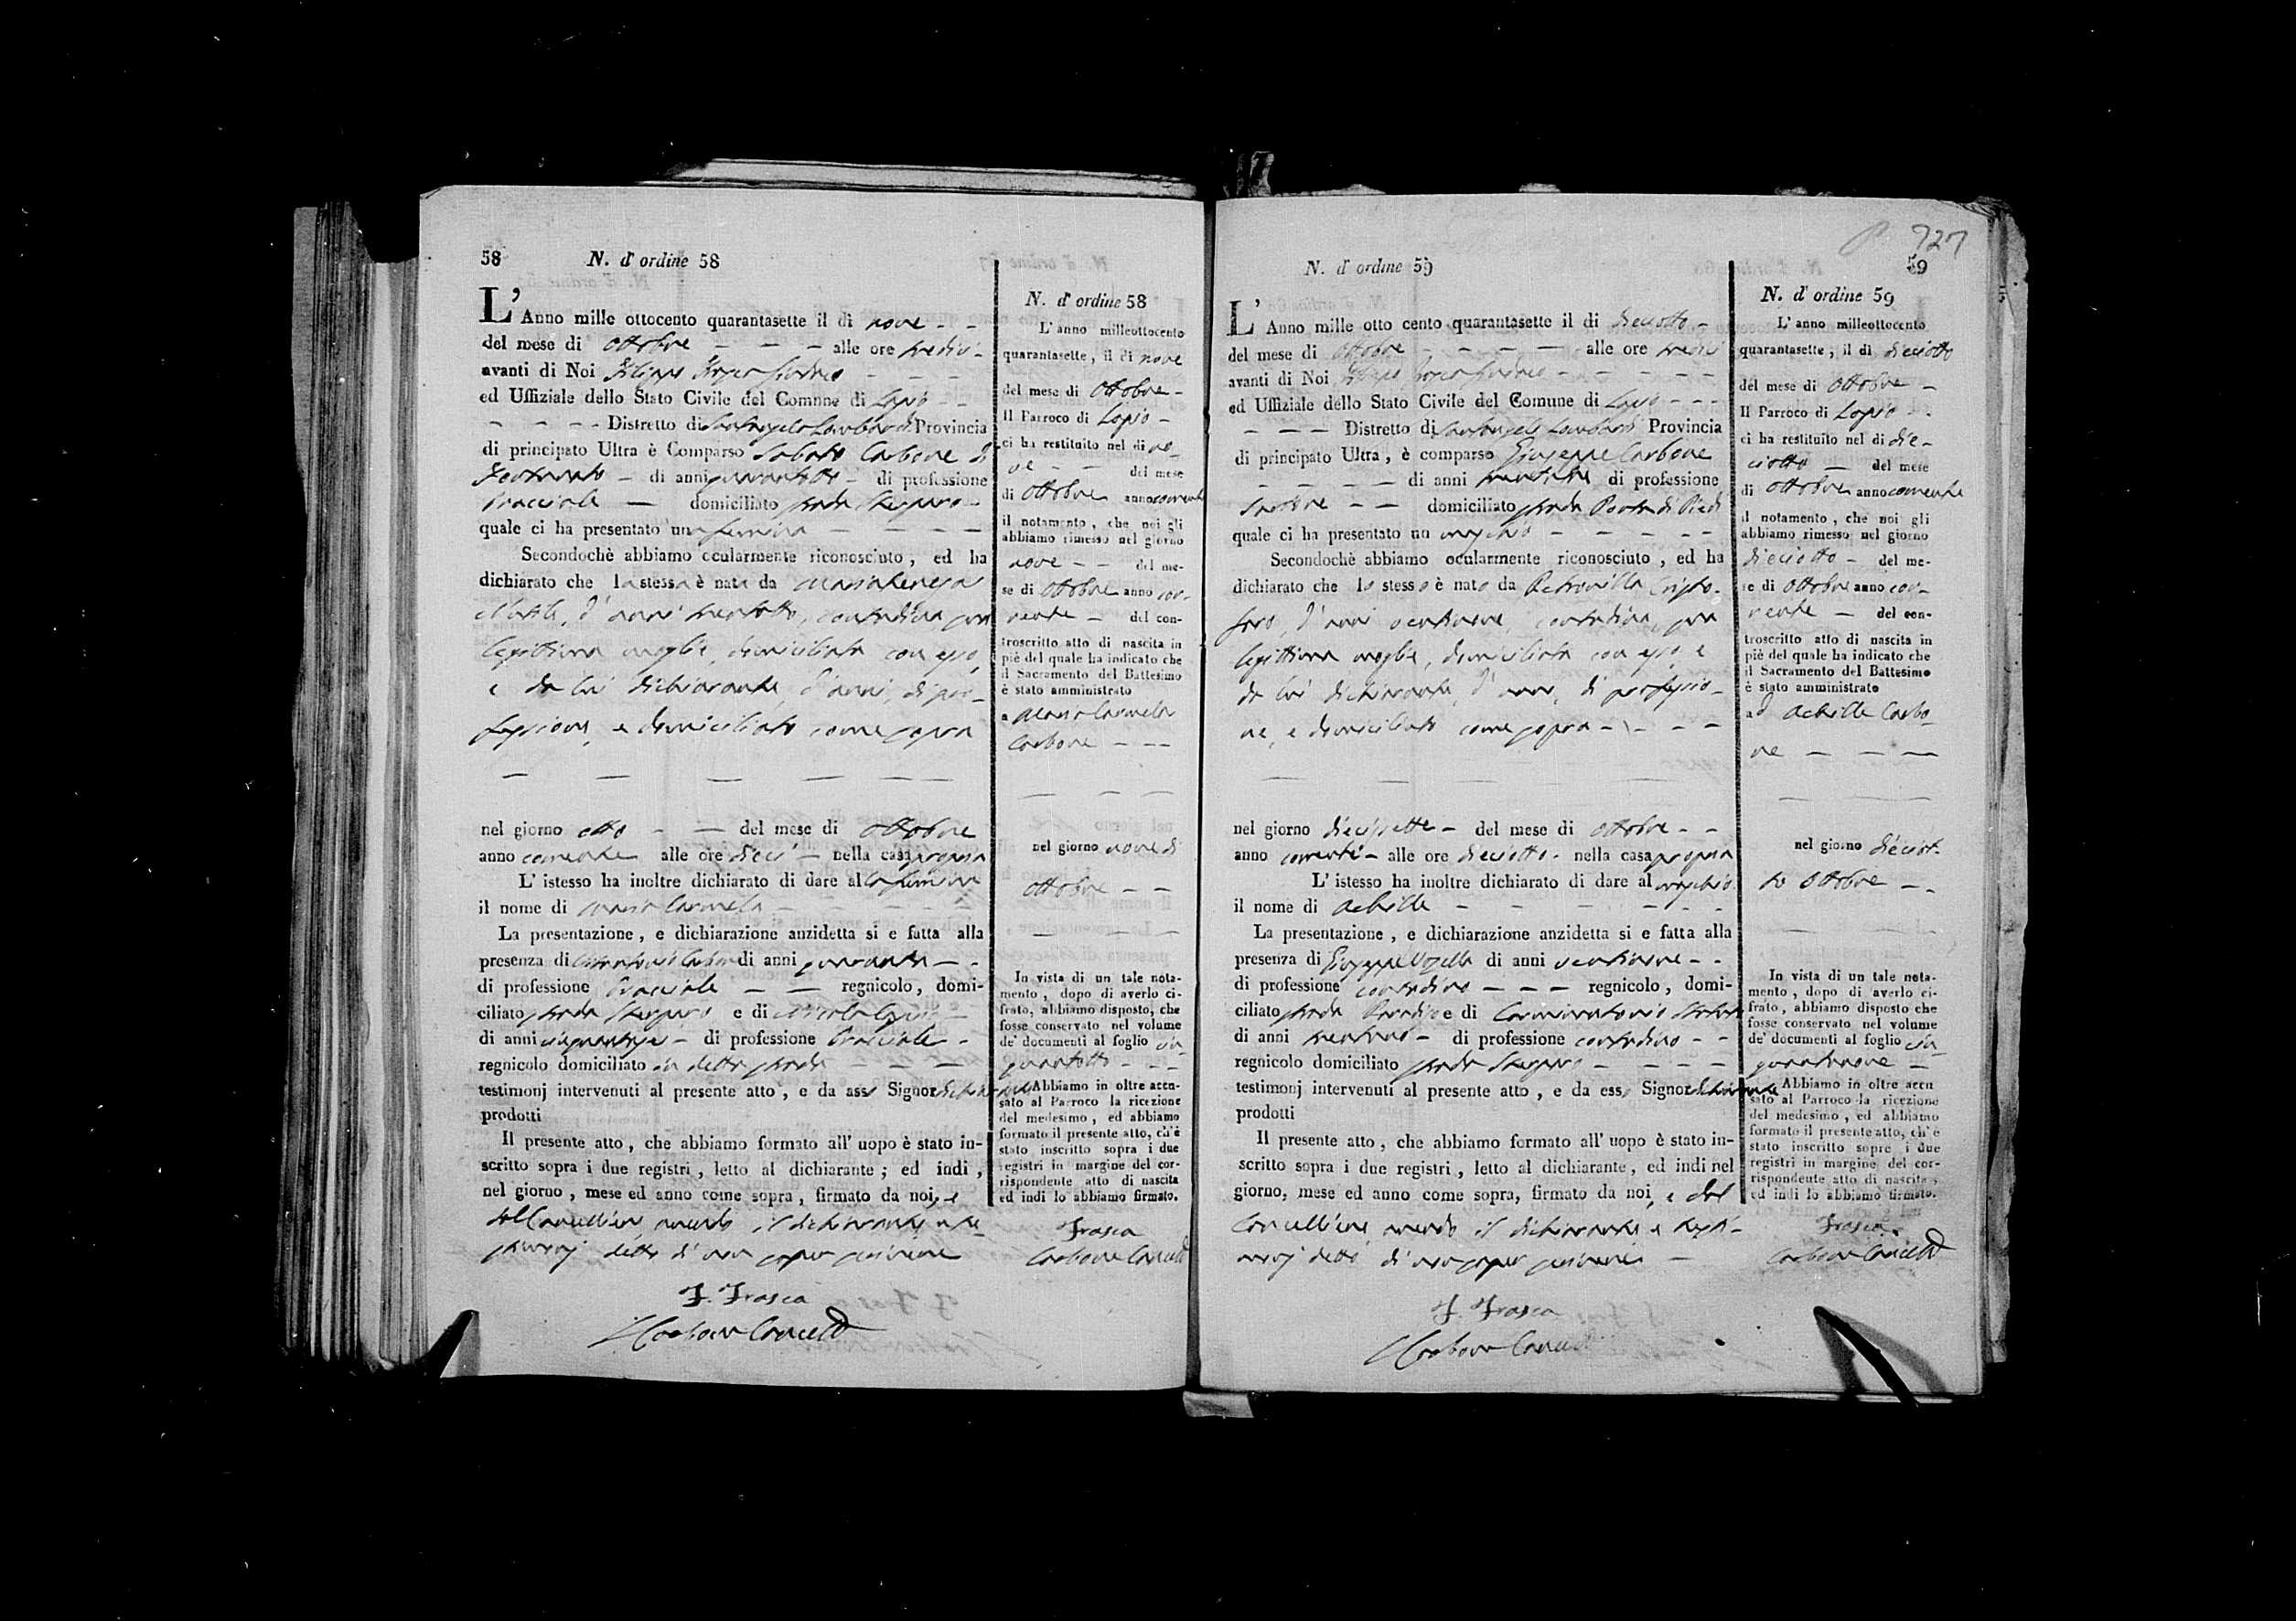 58 N. d' ordine 58
L' Anno mille ottocento quarantasette il di nove
del mese di ottobre alle ore tredici
avanti di Noi Filippo Frasca Sindaco
ed Uffiziale dello Stato Civile del Comune di Lapio
Distretto di Santangelo Lombardi Provincia
di principato Ultra è Comparso Sabato Carbone di
Fortunato di anni quarantotto di professione
bracciale domiciliato strada
quale ci ha presentato una femina
Secondochè abbiamo ocularmente riconosciuto, ed ha
dichiarato che la stessa è nata da Mariateresa
d' anni trentotto, contadina sua
legittima moglie, domiciliata con esso,
e da lui dichiarante, d' anni, di pro-
fessione, e domiciliato come sopra
nel giorno otto del mese di ottobre
anno corrente alle ore dieci nella casa propria
L' istesso ha inoltre dichiarato di dare alla femina
il nome di Maria Carmela
La presentazione, e dichiarazione anzidetta si e fatta alla
presenza di Carbone di anni quaranta
di professione bracciale regnicolo, domi-
ciliato strada e di Nicola
di anni cinquantasei di professione bracciale
regnicolo domiciliato in detta strada
testimonj intervenuti al presente atto, e da asso Signor dichiarante
prodotti
Il presente atto, che abbiamo formato all' uopo è stato in-
scritto sopra i due registri, letto al dichiarante; ed indi,
nel giorno, mese ed anno come sopra, firmato da noi, e
dal Cancelliere, avendo il dichiarante, e te-
stimonj detto di non saper scrivere
F. Frasca
Carbone Cancell
N. d' ordine 58
L' anno milleottocento
quarantasette, il di nove
del mese di Ottobre
Il Parroco di Lapio
ci ha restituito nel di no-
ve del mese
di Ottobre anno corrente
il notamento, che noi gli
abbiamo rimesso nel giorno
nove del me-
se di Ottobre anno cor-
rente del con-
troscritto atto di nascita in
piè del quale ha indicato che
il Sacramento del Battesimo
è stato amministrato
a Maria Carmela
Carbone
nel giorno nove di
ottobre
In vista di un tale nota-
mento, dopo di averlo ci-
frato, abbiamo disposto, che
fosse conservato nel volume
de' documenti al foglio cin-
quantotto
Abbiamo in oltre accu-
sato al Parroco la ricezione
del medesimo, ed abbiamo
formato il presente atto, ch'è
stato inscritto sopra i due
registri in margine del cor-
rispondente atto di nascita
ed indi lo abbiamo firmato.
Frasca
Carbone Cancell
727
N. d' ordine 59 59
L' Anno mille otto cento quarantasette il di dieciotto
del mese di ottobre alle ore tredici
avanti di Noi Filippo Frasca Sindaco
ed Uffiziale dello Stato Civile del Comune di Lapio
Distretto di Santangelo Lombardi Provincia
di principato Ultra, è comparso Giuseppe Carbone
di anni trentatre di professione
sartore domiciliato strada Porta di Piedi
quale ci ha presentato un maschio
Secondochè abbiamo ocularmente riconosciuto, ed ha
dichiarato che lo stesso è nato da Petronilla Cristo-
faro, d' anni ventinove, contadina, sua
legittima moglie, domiciliata con esso, e
da lui dichiarante, d' anni, di professio-
ne, e domiciliato come sopra
nel giorno diecisette del mese di ottobre
anno corrente alle ore dieciotto nella casa propria
L' istesso ha inoltre dichiarato di dare al maschio
il nome di Achille
La presentazione, e dichiarazione anzidetta si e fatta alla
presenza di Giuseppe di anni ventinove
di professione contadino regnicolo, domi-
ciliato strada Paradiso e di Carminantonio
di anni trentuno di professione contadino
regnicolo domiciliato strada
testimonj intervenuti al presente atto, e da esso Signor dichiarante
prodotti
Il presente atto, che abbiamo formato all' uopo è stato in-
scritto sopra i due registri, letto al dichiarante, ed indi nel
giorno, mese ed anno come sopra, firmato da noi, e dal
Cancelliere, avendo il dichiarante e testi-
monj detto di non saper scrivere
F. Frasca
Carbone Cancell
N. d' ordine 59
L' anno milleottocento
quarantasette, il di dieciotto
del mese di Ottobre
Il Parroco di Lapio
ci ha restituito nel di die-
ciotto del mese
di Ottobre anno corrente
il notamento, che noi gli
abbiamo rimesso nel giorno
dieciotto del me-
se di Ottobre anno cor-
rente del con-
troscritto atto di nascita in
piè del quale ha indicato che
il Sacramento del Battesimo
è stato amministrato
ad Achille Carbo-
ne
nel giorno dieciot-
to Ottobre
In vista di un tale nota-
mento, dopo di averlo ci-
frato, abbiamo disposto che
fosse conservato nel volume
de' documenti al foglio cin-
quantanove
Abbiamo in oltre accu
sato al Parroco la ricezione
del medesimo, ed abbiamo
formato il presente atto, ch'è
stato inscritto sopra i due
registri in margine del cor-
rispondente atto di nascita,
ed indi lo abbiamo firmato.
Frasca
Carbone Cancell